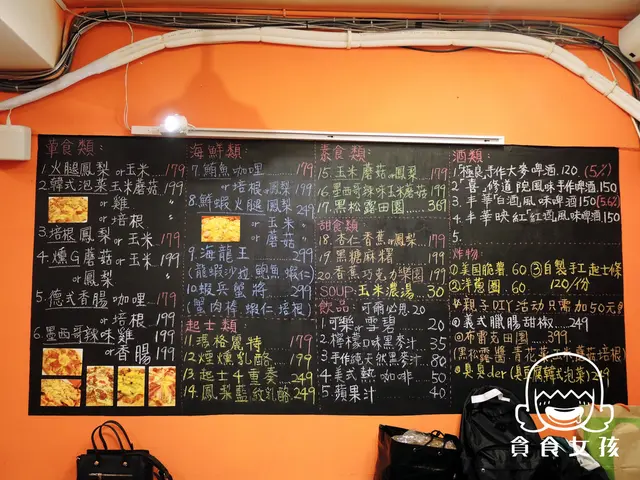 葷食類:
1.火腿鳳梨or玉米 179
2.韓式泡菜玉米蘑菇199
or雞 199
or培根 199
3.培根鳳梨or玉米 179
4.燻G蘑菇or玉米 199
or鳳梨 199
5.德式香腸咖哩 199
or培根 199
6.墨西哥辣味雞 199
or香腸 199
海鮮類:
7.鮪魚咖哩 199
or培根or鳳梨 199
8.鮮蝦火腿鳳梨 249
or玉米
or蘑菇
9.海龍王 299
(龍蝦沙拉鮑魚蝦仁)
10.蝦兵蟹將 299
(蟹肉棒蝦仁培根)
起士類:
11.瑪格麗特 179
12.煙燻乳酪 199
13.起士4重奏 249
14.鳳梨藍紋乳酪249
素食類:
15.玉米蘑菇or鳳梨 179
16.墨西哥辣味玉米蘑菇199
17.黑松露田園 369
甜食類:
18.杏仁香蕉or鳳梨 179
19.黑糖麻糬 199
20.香蕉巧克力樂園 199
SOUP:玉米濃湯 30
飲品:
1.可樂or雪碧 20
2.檸檬口味黑麥汁 35
3.手作純天然黑麥汁 80
4.美式熱咖啡 50
5.蘋果汁 40
酒類:
1.極良手作大麥啤酒.120 (5%)
2."喜"修道院風味手作啤酒150
3.丰華"白酒"風味啤酒150(5.6%)
4.丰華映紅"紅酒"風味啤酒150
5.
炸物:
①美國脆薯.60 ③自製手工起士條
②洋蔥圈.60 120/份
親子DIY活動只需加50元
義式臘腸甜椒 249
布雷克田園 399
(黑松露醬青花菜玉米蘑菇培根)
臭臭der(臭豆腐韓式泡菜)249
貪食女孩